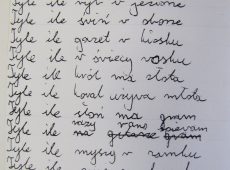 Tyle ile ryb w jeziorze
Tyle ile świń w oborze
Tyle ile gazet w kiosku
Tyle ile w świecy wosku
Tyle ile król ma złota
Tyle ile kował używa młota
Tyle ile słoń ma gram
razy rano śpiewam
Tyle ile na gitarze gram
Tyle ile myszy w zamku
Tyle ile